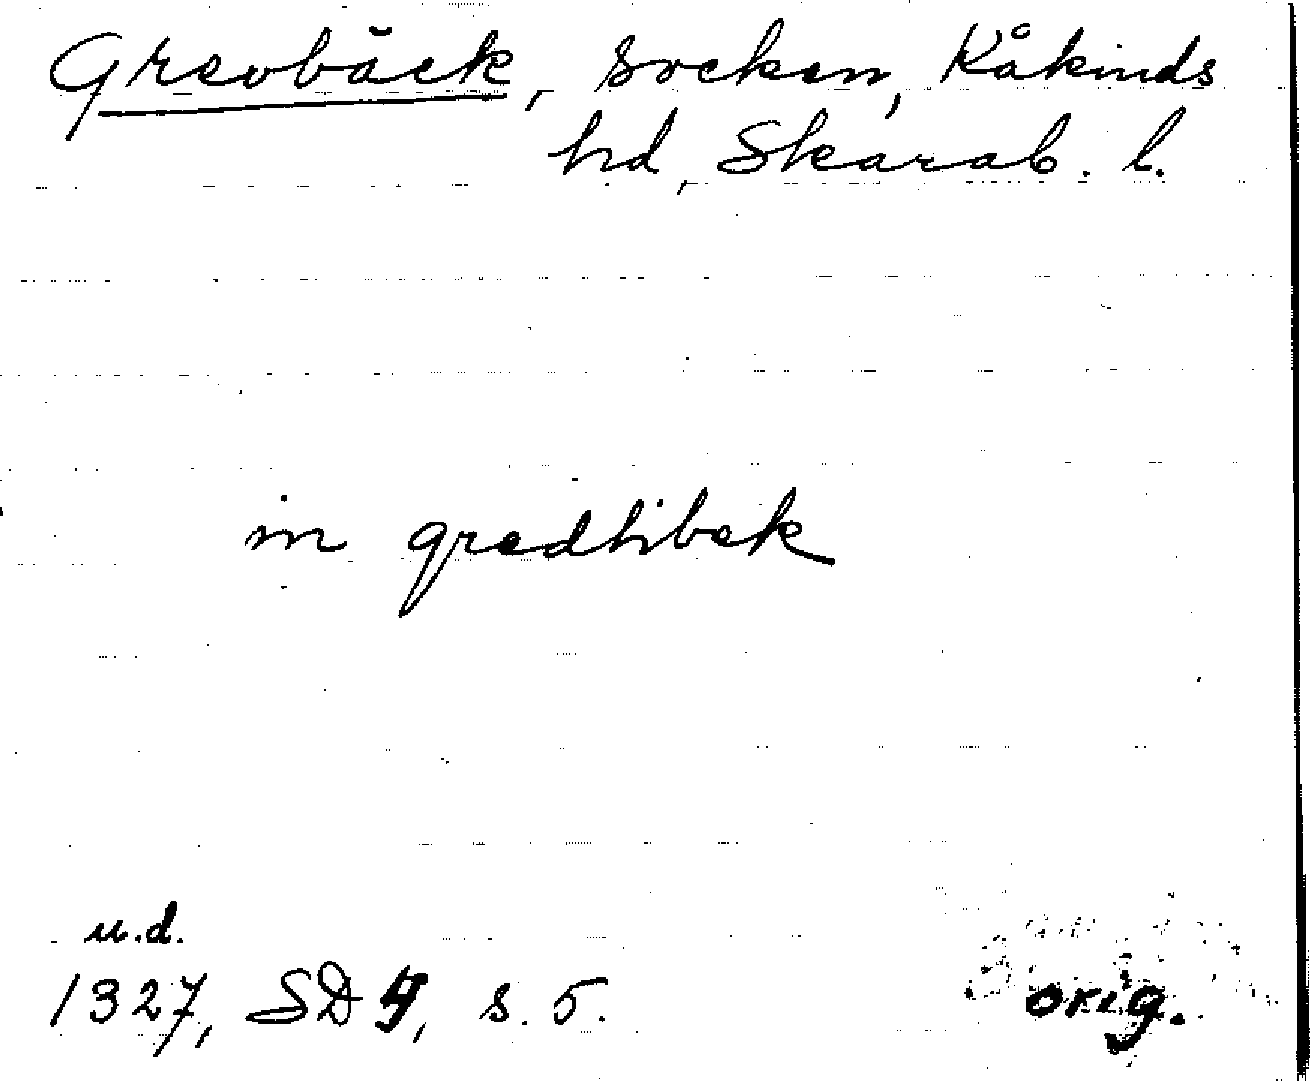 Grevbäck, socken, Kåkinds
hd, Skarab. l.
in gredhibek
u.d.
1327, SD 4, s. 5.
orig.